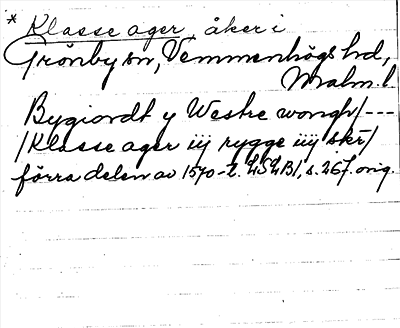 * Klasse ager, åker i
Grönby sn, Vemmenhögs hd,
Malm. l.
Bygiordt y Westre wongh/---
/Klasse ager iij rygge iiij skr/
förra delen av 1570-t. LSLB1, s. 267. orig.